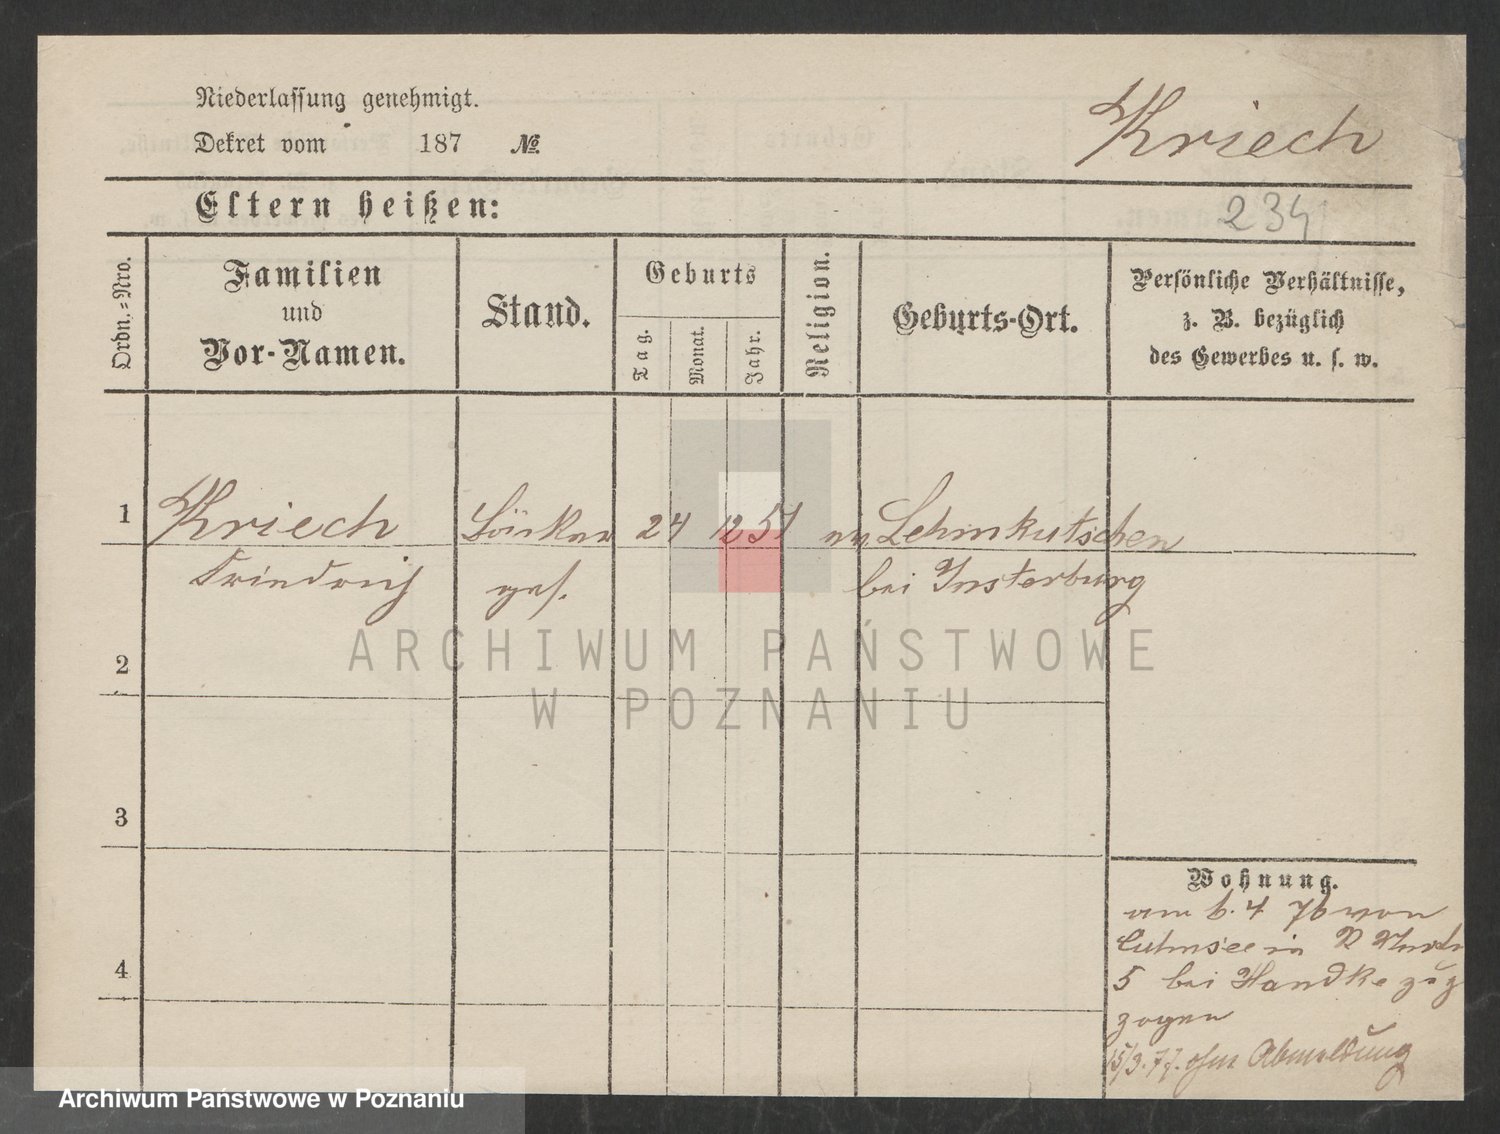 Niederlassung genehmigt.
Dekret vom 187 №
Kriech
Eltern heißen:
234
Ordn.-Nro.
Familien
und
Vor-Namen.
Stand.
Geburts
Tag.
Monat.
Jahr.
Religion.
Geburts-Ort.
Persönliche Verhältnisse,
z. B. bezüglich
des Gewerbes u. s. w.
1 Kriech 24 12 51 ev. Lehmkutschen
Friedrich ges. bei Insterburg
2
3
4
Wohnung.
am 6. 4 76 von
Culmsee in
5 bei Handke zuge
zogen
15/3. 77. ohne Abmeldung
ARCHIWUM PAŃSTWOWE
W POZNANIU
Archiwum Państwowe w Poznaniu